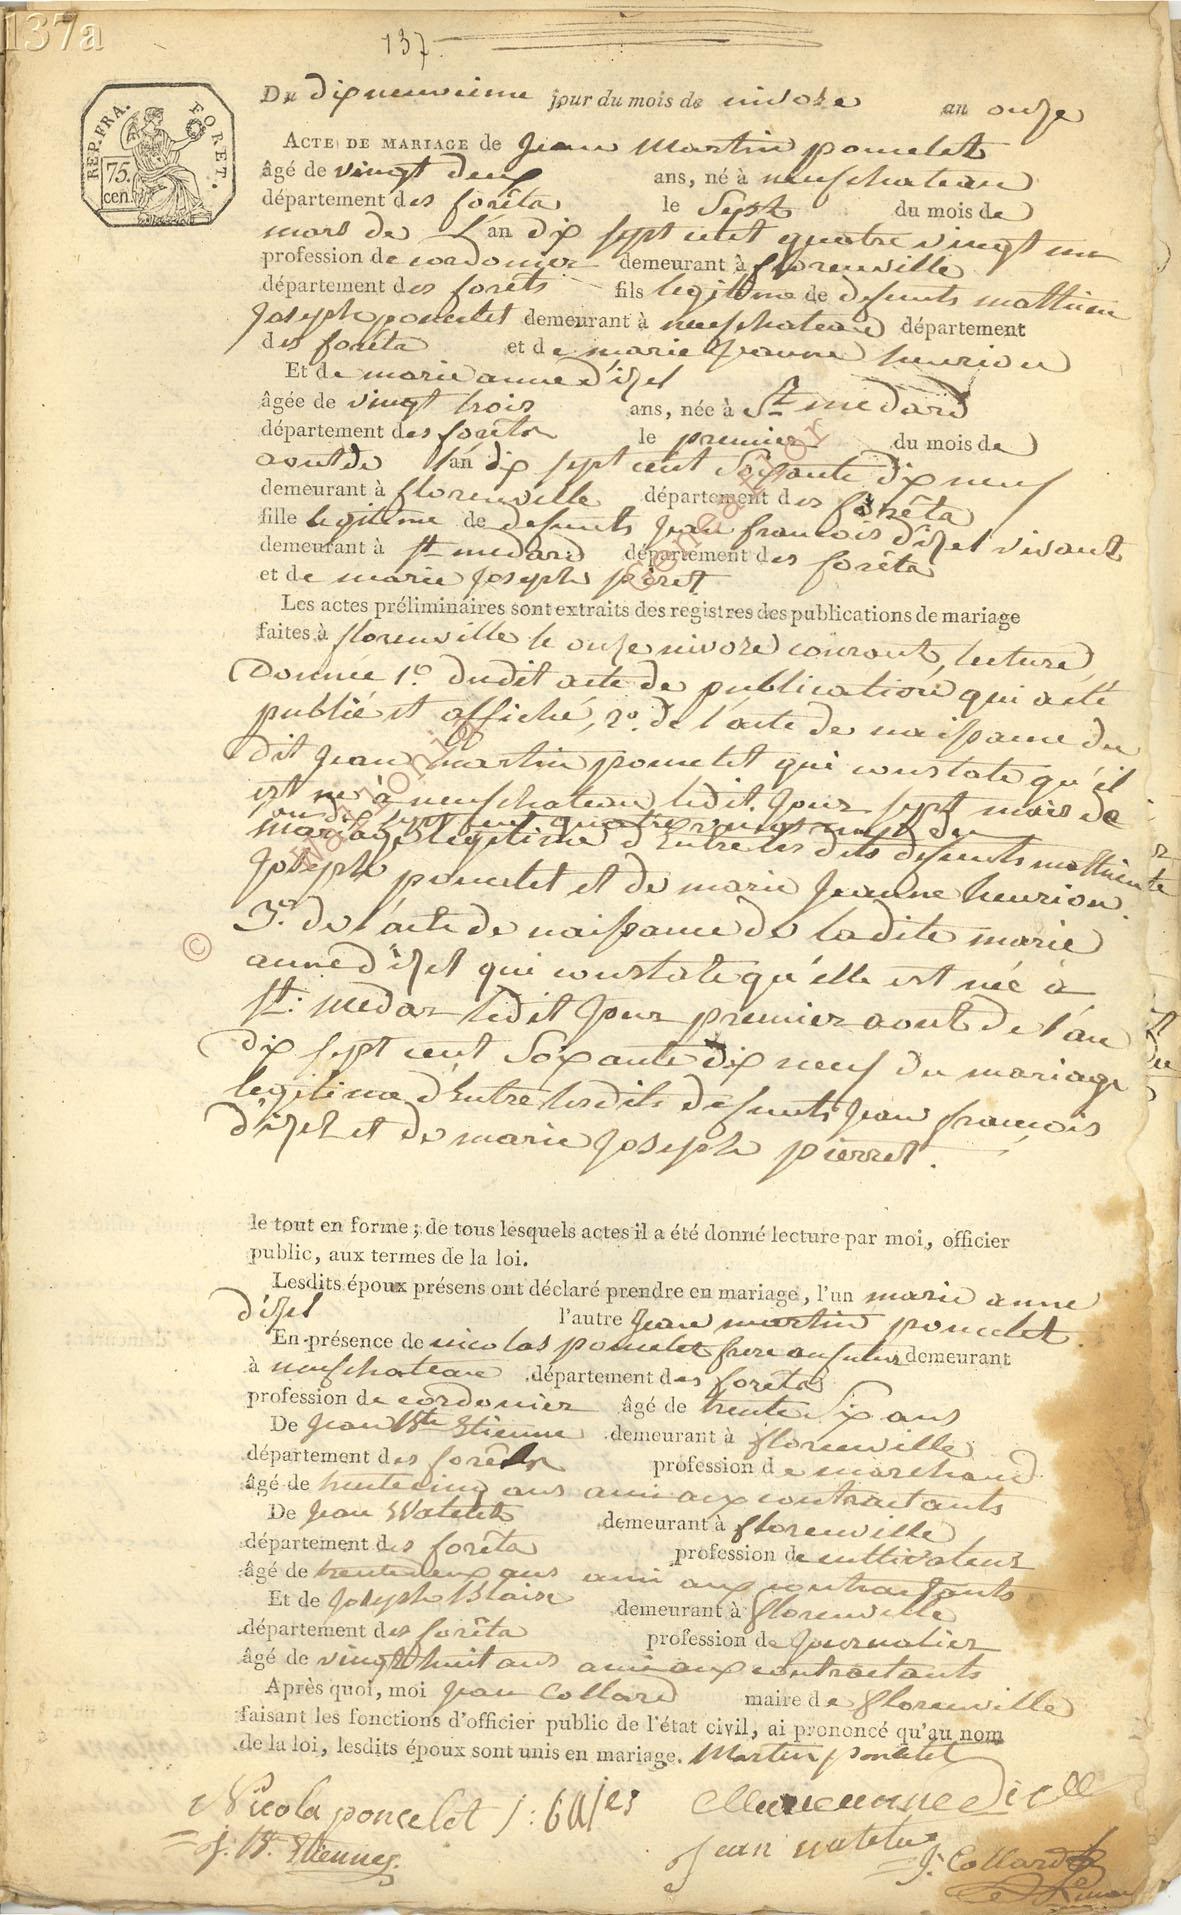 137a
137.
REP. FRA.
FORET.
75.
cen.
Du dix neuvieme jour du mois de nivose an onze
ACTE DE MARIAGE de Jean Martin poncelet
âgé de vingt deux ans, né à neufchateau
département des forêts le Sept du mois de
mars de l'an dix sept cent quatre vingt un
profession de cordonier demeurant à florenville
département des forêts fils legitime de defunts mathieu
Joseph poncelet demeurant à neufchateau département
des forêts et de marie Jeanne henrion
Et de marie anne d'izel
âgée de vingt trois ans, née à St medard
département des forêts le premier du mois de
aout de l'an dix sept cent Soixante dix neuf
demeurant à florenville département des forêts
fille legitime de defunts Jean francois d'izel vivant
demeurant à St medard département des forêts
et de marie Joseph pieret
Les actes préliminaires sont extraits des registres des publications de mariage
faites à florenville le onze nivose courant, lecture
Donnée 1º. dudit acte de publication qui a été
publié et affiché, 2º. de l'acte de naissance du
dit Jean martin poncelet qui constate qu'il
est né à neufchateau ledit Jour sept mars de
l'an dix sept cent quatre vingt un du
mariage legitime d'Entre les dits defunts mathieu
Joseph poncelet et de marie Jeanne henrion.
3º. de l'acte de naissance de ladite marie
anne d'izel qui constate qu'elle est née à
St. medar ledit Jour premier aout de l'an
dix sept cent Soixante dix neuf du mariage
legitime d'Entre lesdits defunts Jean francois
d'izel et de marie Joseph pierret.
le tout en forme; de tous lesquels actes il a été donné lecture par moi, officier
public, aux termes de la loi.
Lesdits époux présens ont déclaré prendre en mariage, l'un marie anne
d'izel l'autre Jean martin poncelet
En présence de nicolas poncelet frere au futur demeurant
à neufchateau département des forêts
profession de cordonier âgé de trente Six ans
De Jean Bte Etienne demeurant à florenville
département des forêts profession de marchand
âgé de trente cinq ans ami aux contractants
De Jean Watelet demeurant à florenville
département des forêts profession de cultivateur
âgé de trente deux ans ami aux contractants
Et de Joseph Blaise demeurant à florenville
département des forêts profession de Journalier
âgé de vingt huit ans ami aux contractants
Après quoi, moi Jean Collard maire de florenville
faisant les fonctions d'officier public de l'état civil, ai prononcé qu'au nom
de la loi, lesdits époux sont unis en mariage. Martin poncelet
Nicola poncelet
J: Bt. Etienne
Jean watelet
J. Collard
©